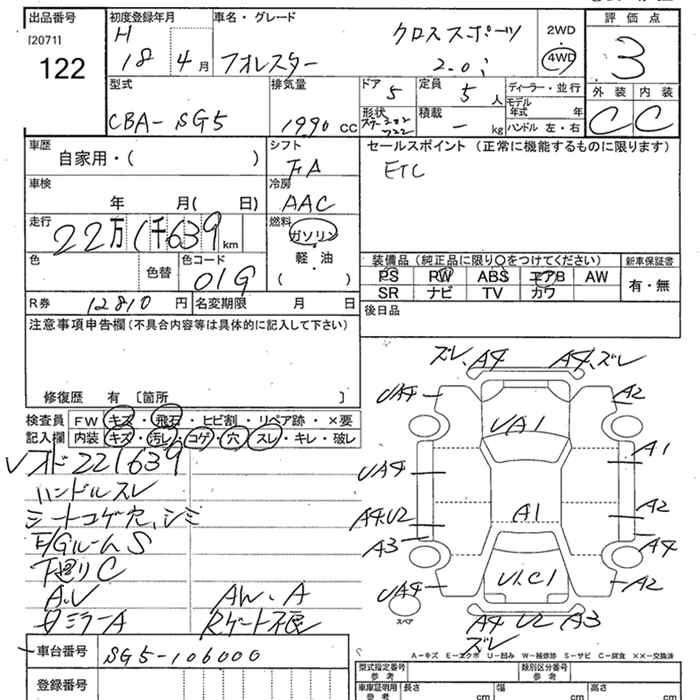 出品番号
[2071]
122
初度登録年月
H
18年 4月
車名・グレード
フォレスター
クロススポーツ
2.0i
2WD
4WD
評価点
3
外装 内装
C C
型式
CBA-SG5
排気量
1990 cc
ドア 5
形状
定員 5 人
積載 - kg
ディーラー・並行
モデル年式 年
ハンドル 左・右
車歴
自家用・( )
シフト
FA
車検
年 月( 日)
冷房
AAC
走行
22万1千639 km
燃料
ガソリン
軽・油
( )
色
色替
色コード
01G
R券 12810 円
名変期限 月 日
セールスポイント (正常に機能するものに限ります)
ETC
装備品 (純正品に限り○をつけてください)
新車保証書
PS PW ABS エアB AW
SR ナビ TV カワ
有・無
後日品
注意事項申告欄 (不具合内容等は具体的に記入して下さい)
修復歴 有 [箇所 ]
検査員記入欄
FW キズ・飛石・ヒビ割・リペア跡・×要
内装 キズ・汚レ・コゲ・穴・スレ・キレ・破レ
オド221639
ハンドルスレ
シートコゲ穴、シミ
E/GルームS
下廻りC
A.V
AW.A
ミラーA
Rゲート不良
車台番号 SG5-106000
登録番号
ズレ、A4
A4、ズレ
UA4
A2
UA1
A1
UA4
A4U2
A1
A2
A3
A4
UA4
U1C1
A2
スペア
A4 U2 A3
ズレ
A-キズ E-エクボ U-凹み W-補修跡 S-サビ C-腐食 XX-交換済
型式指定番号
参考
類別区分番号
参考
車庫証明用
参考
長さ cm
幅 cm
高さ cm